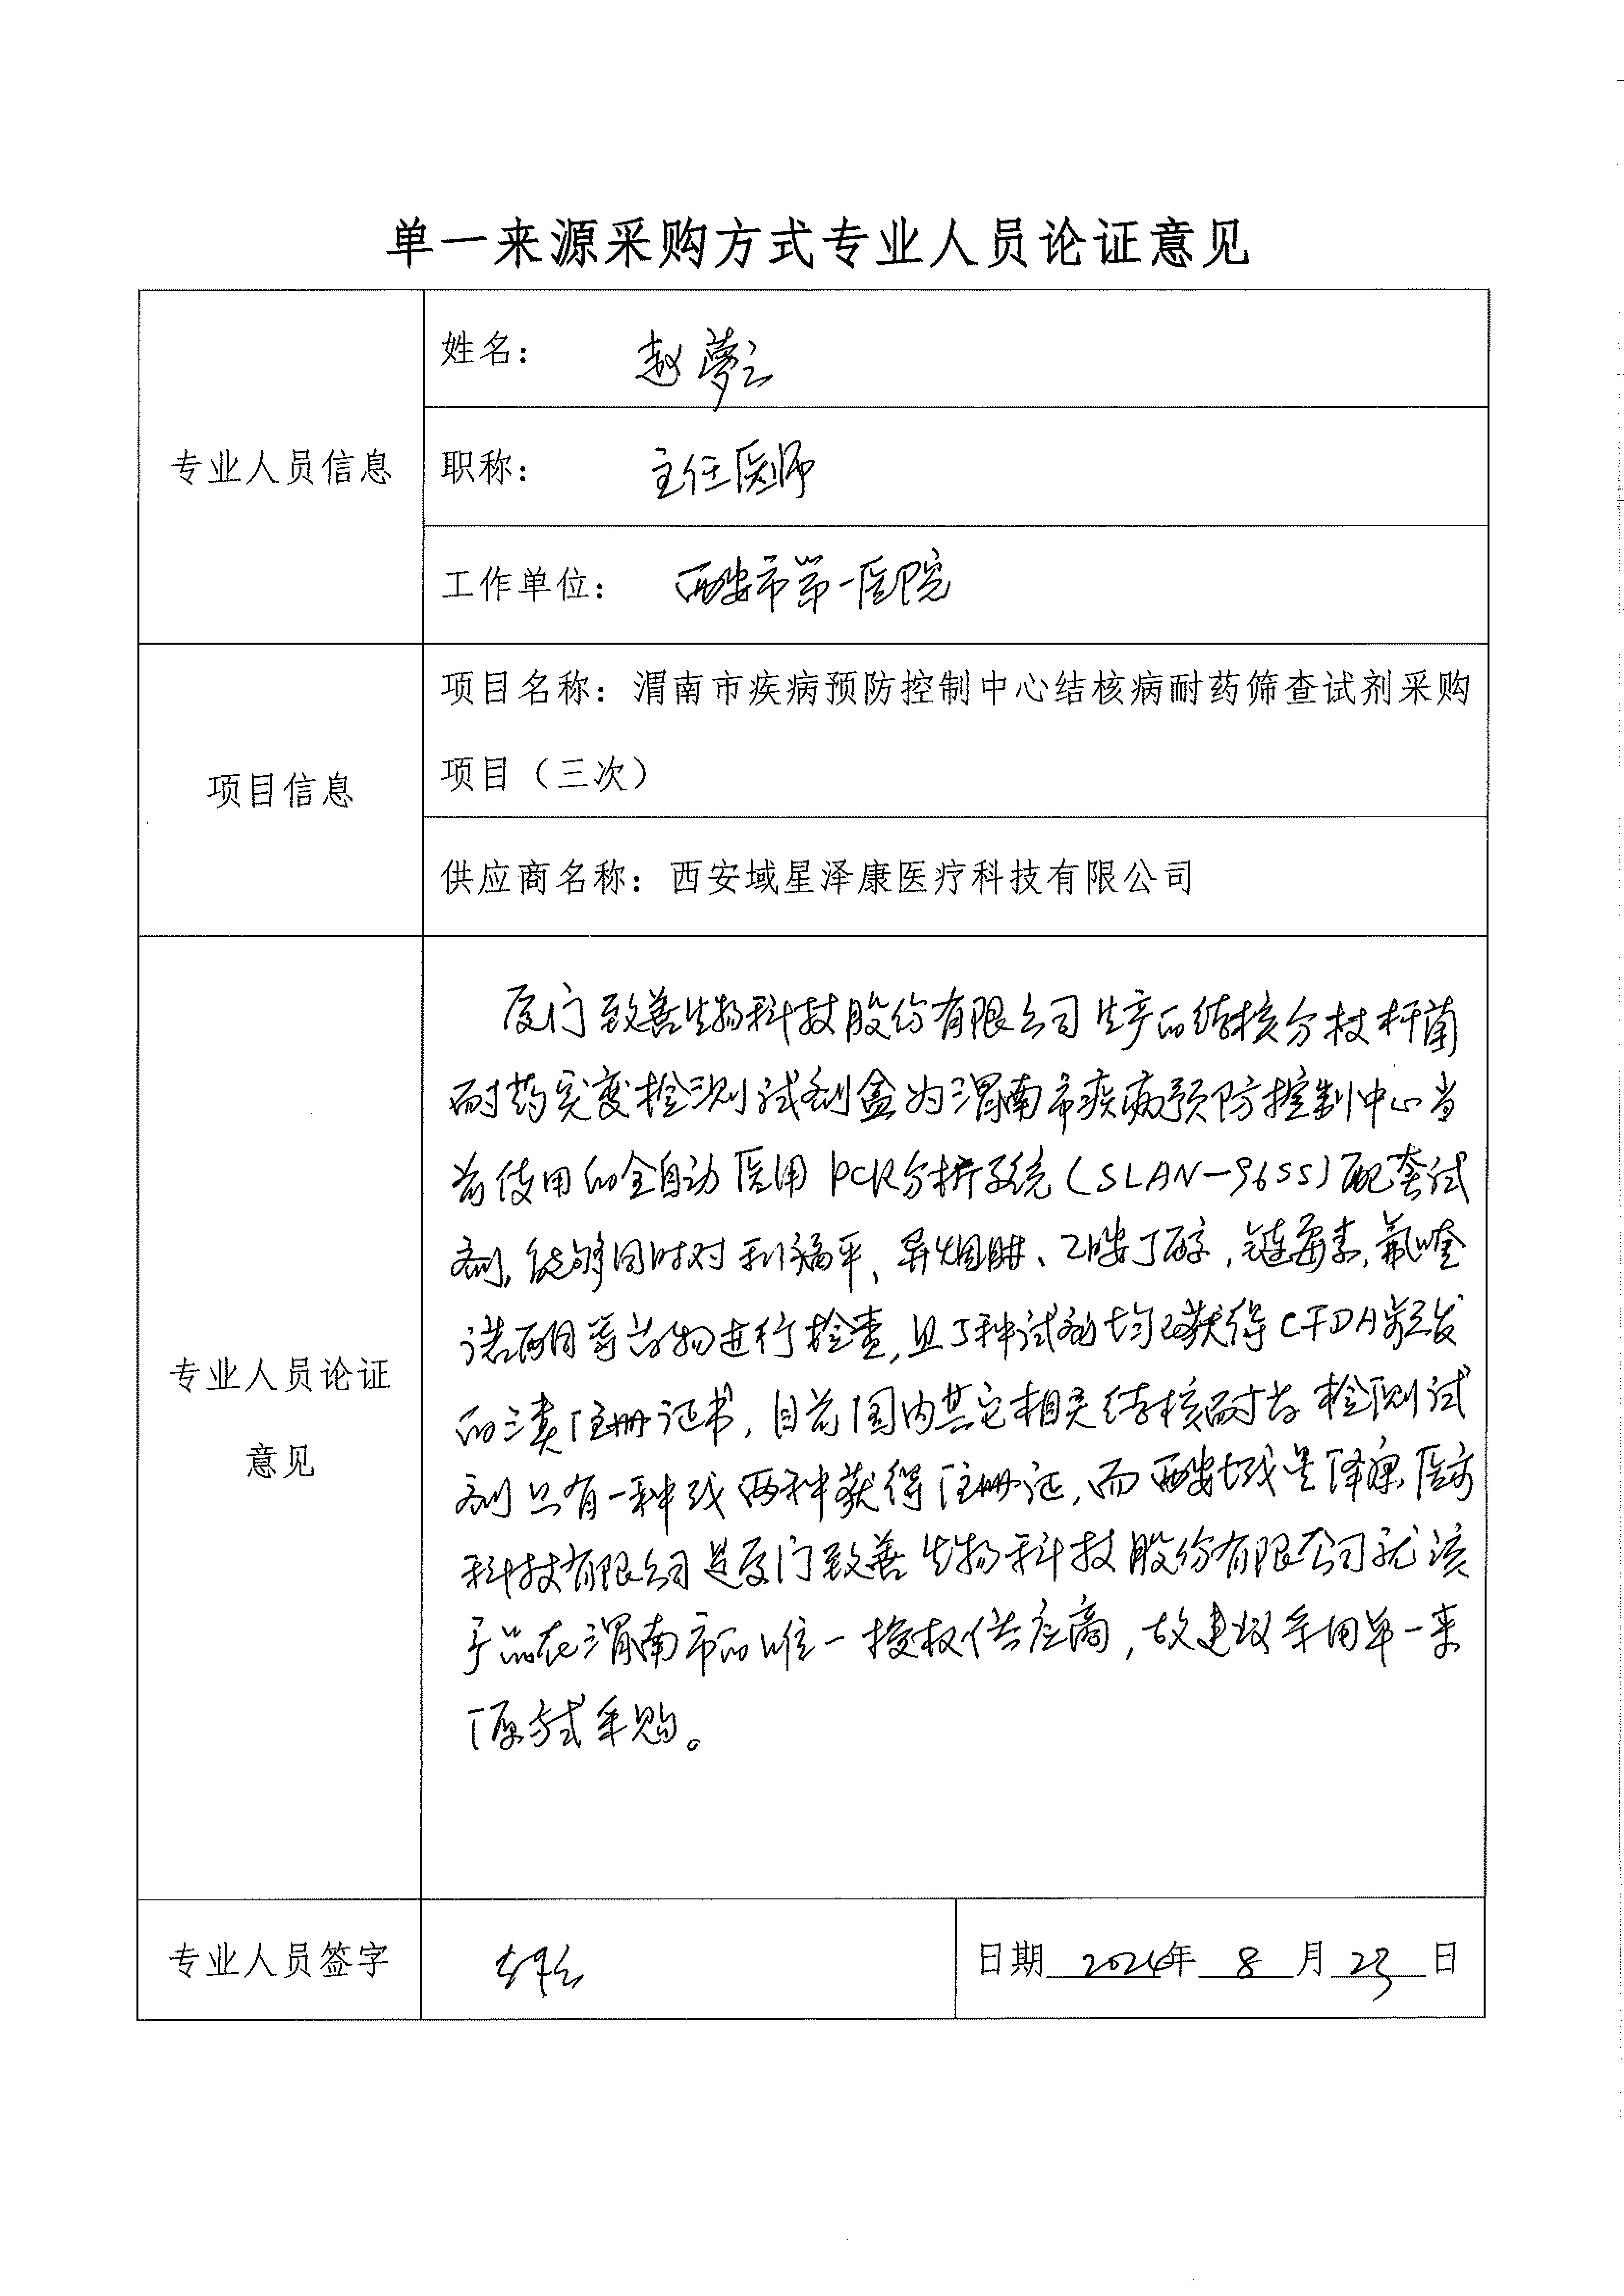 单一来源采购方式专业人员论证意见
专业人员信息
姓名： 赵梦
职称： 主任医师
工作单位： 西安市第一医院
项目信息
项目名称：渭南市疾病预防控制中心结核病耐药筛查试剂采购
项目（三次）
供应商名称：西安域星泽康医疗科技有限公司
专业人员论证
意见
厦门致善生物科技股份有限公司生产的结核分枝杆菌
耐药突变检测试剂盒为渭南市疾病预防控制中心当
前使用的全自动医用PCR分析系统(SLAN-96SS)配套试
剂,能够同时对利福平、异烟肼、乙胺丁醇,链霉素,氟喹
诺酮等药物进行检查,且5种试剂均已获得CFDA颁发
的三类注册证书,目前国内其它相关结核耐药检测试
剂只有一种或两种获得注册证,而西安域星泽康医疗
科技有限公司是厦门致善生物科技股份有限公司就该
产品在渭南市的唯一授权供应商,故建议采用单一来
源方式采购。
专业人员签字
日期 2024年 8 月 23 日